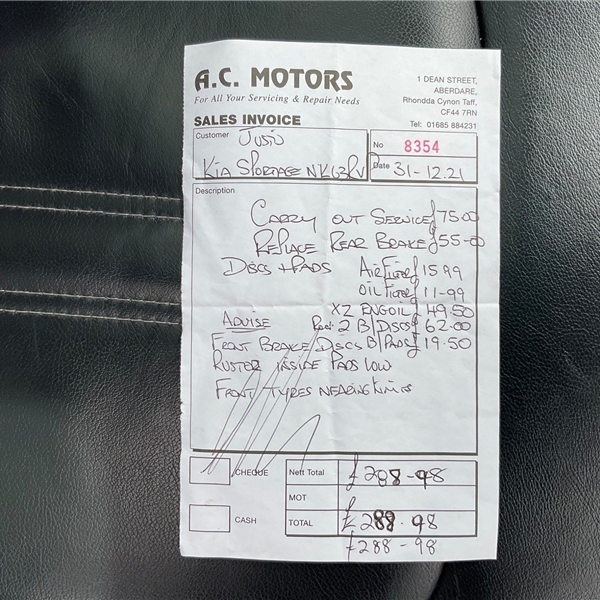 A.C. MOTORS
For All Your Servicing & Repair Needs
1 DEAN STREET,
ABERDARE,
Rhondda Cynon Taff,
CF44 7RN
Tel: 01685 884231
SALES INVOICE
Customer
KIA SPORTAGE
No 8354
Date 31-12.21
Description
CARRY OUT SERVICE £75.00
REPLACE REAR BRAKE £55-00
DISCS + PADS AIR FILTER £15.99
OIL FILTER £11-99
X2 ENG OIL £49.50
ADVISE 2 B/DISCS £62.00
FRONT BRAKE DISCS B/PADS £19.50
INSIDE PADS LOW
FRONT TYRES NEARING LIMITS
CHEQUE
CASH
Nett Total £288-98
MOT
TOTAL £288.98
£288-98